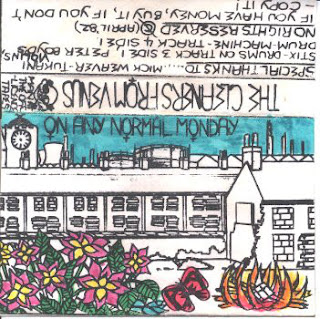 THE CLEANERS FROM VENUS
ON ANY NORMAL MONDAY
SPECIAL THANKS TO..... MICK WEAVER-TUKAN!
STIX-DRUMS ON TRACK 3 SIDE 1 PETER
DRUM-MACHINE-TRACK 4 SIDE 1
NO RIGHTS RESERVED © (APRIL 82)
IF YOU HAVE MONEY, BUY IT, IF YOU DON'T
COPY IT!